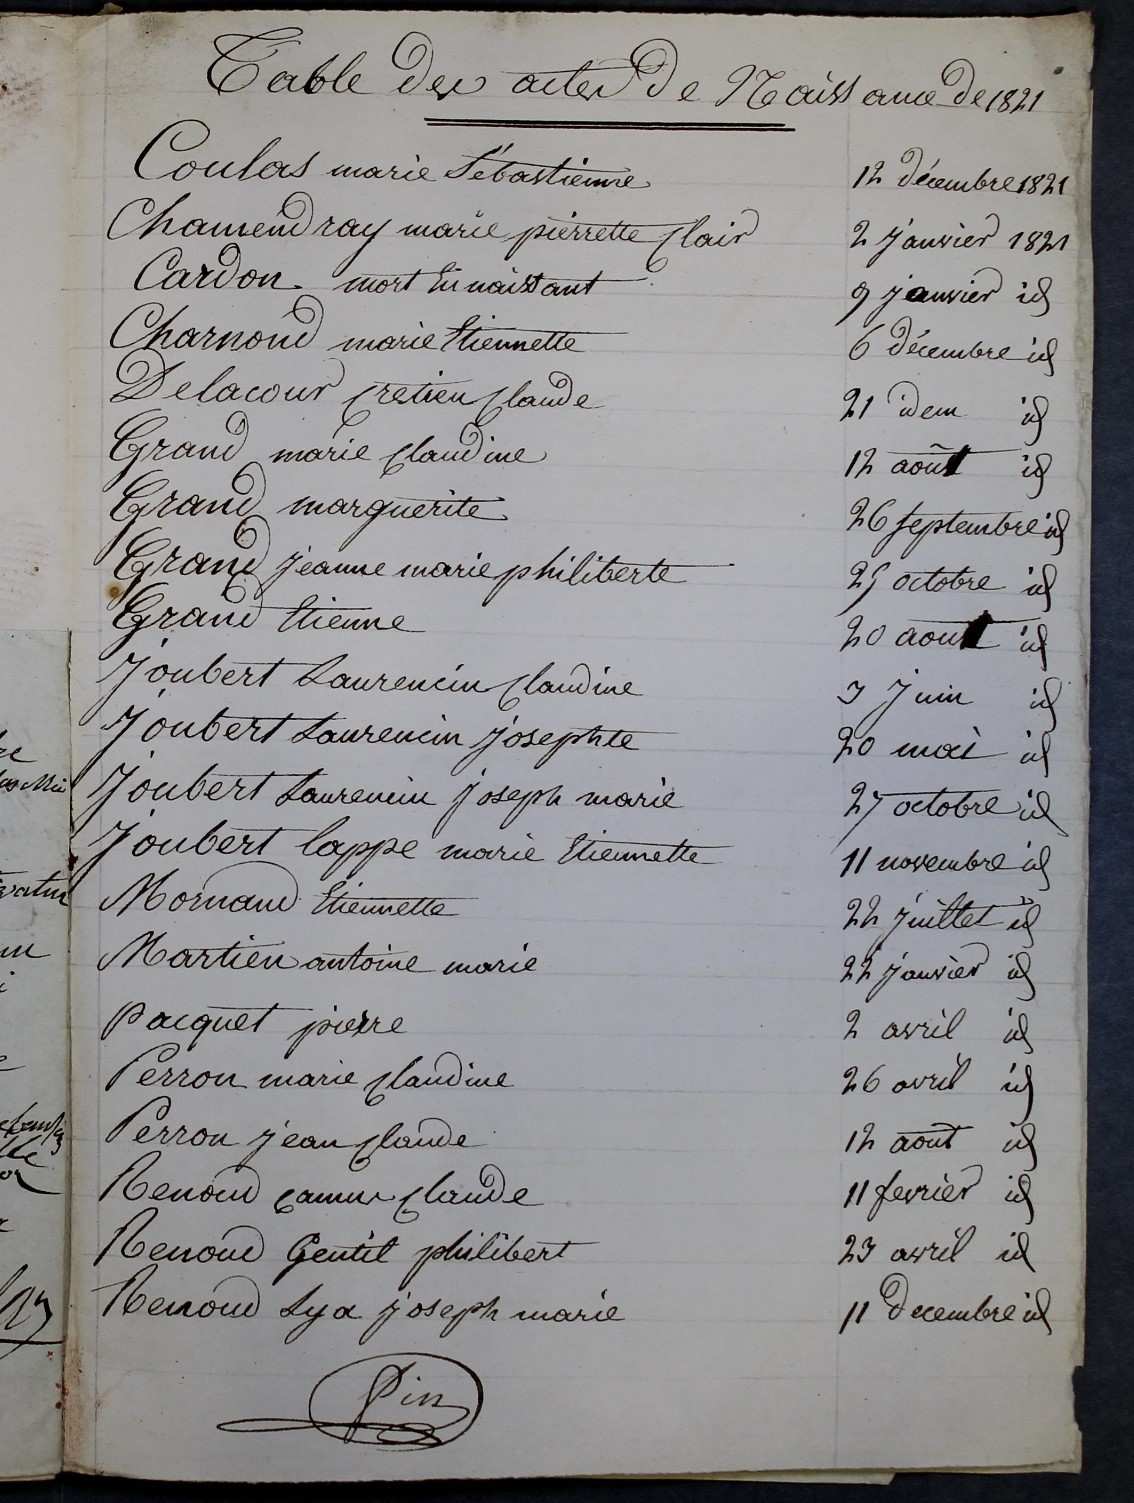 Table des actes de Naissance de 1821
Coulas marie Sébastienne 12 décembre 1821
Chamendray marie pierrette Clair 2 janvier 1821
Cardon mort En naissant 9 janvier id
Charnond marie Etiennette 6 décembre id
Delacour Cretien Claude 21 idem id
Grand marie Claudine 12 août id
Grand marguerite 26 Septembre id
Grand jeanne marie philiberte 25 octobre id
Grand Etienne 20 aout id
Joubert Laurencin Claudine 3 Juin id
Joubert Laurencin josephte 20 mai id
Joubert Laurencin joseph marie 27 octobre id
Joubert lappe marie Etiennette 11 novembre id
Mornand Etiennette 22 juillet id
Martien antoine marie 22 janvier id
Pacquet pierre 2 avril id
Perron marie Claudine 26 avril id
Perron jean Claude 12 aout id
Renoud Camus Claude 11 fevrier id
Renoud Gentil philibert 23 avril id
Renoud Lya joseph marie 11 Decembre id
Pin